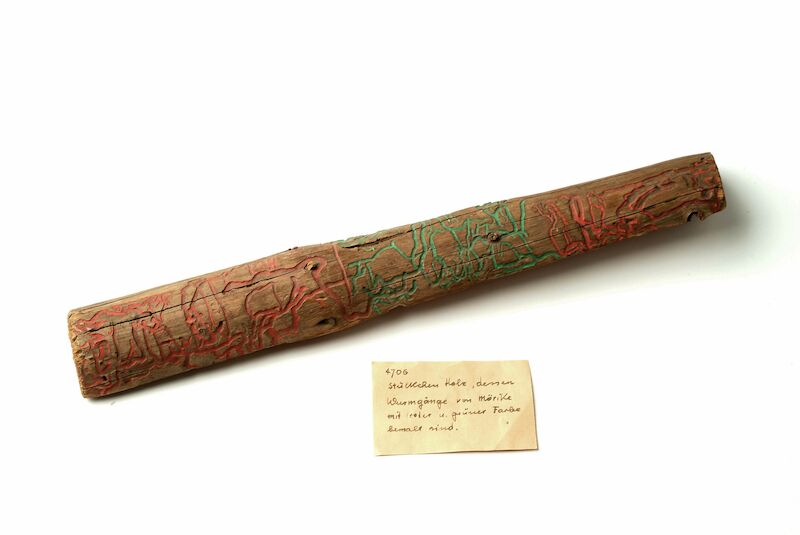 4706
Stückchen Holz, dessen
Wurmgänge von Mörike
mit roter u. grüner Farbe
bemalt sind.